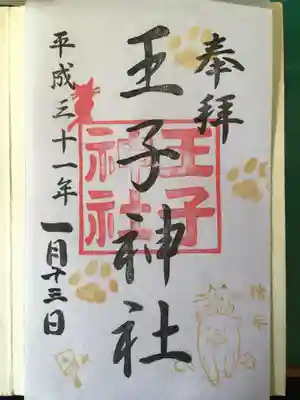 奉拝
王子神社
王子
神社
平成三十一年 一月十三日